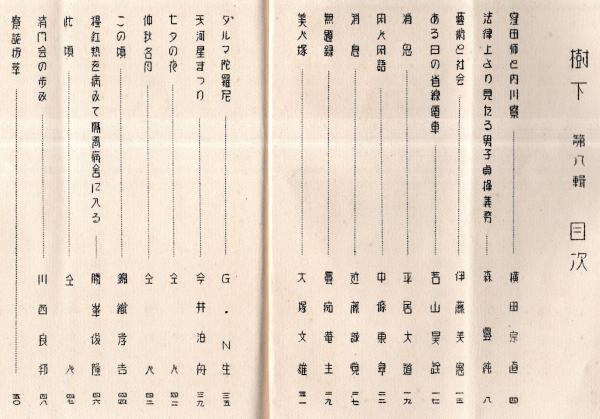 樹下 第八輯 目次
窪田師と内川寮 横田宗直 四
法律上より見たる男子貞操義務 森 豊純 八
藝術と社会 伊藤美憲 一五
ある日の省線電車 若山昊詮 一七
消息 平居大道 一九
閑人閑語 中條東皐 二三
消息 近藤誠寛 二七
無題録 曇痴菴主 二九
美人塚 大塚文雄 三一
ダルマ陀羅尼 G・N生 三五
天河星まつり 今井泊舟 三九
七夕の夜 仝 人 四二
仲秋名月 仝 人 四三
この頃 錦織孝吉 四四
猩紅熱を病みて隔離病舎に入る 勝峯俊隆 四六
此頃 仝 人 四八
済門会の歩み 川西良邦 四八
寮誌抜萃 五〇